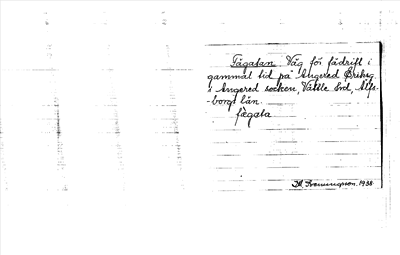 Fägatan. Väg för fädrift i
gammal tid på Angered
i Angered socken, Vättle hd, Älfs-
-borgs län.
fägata
1938